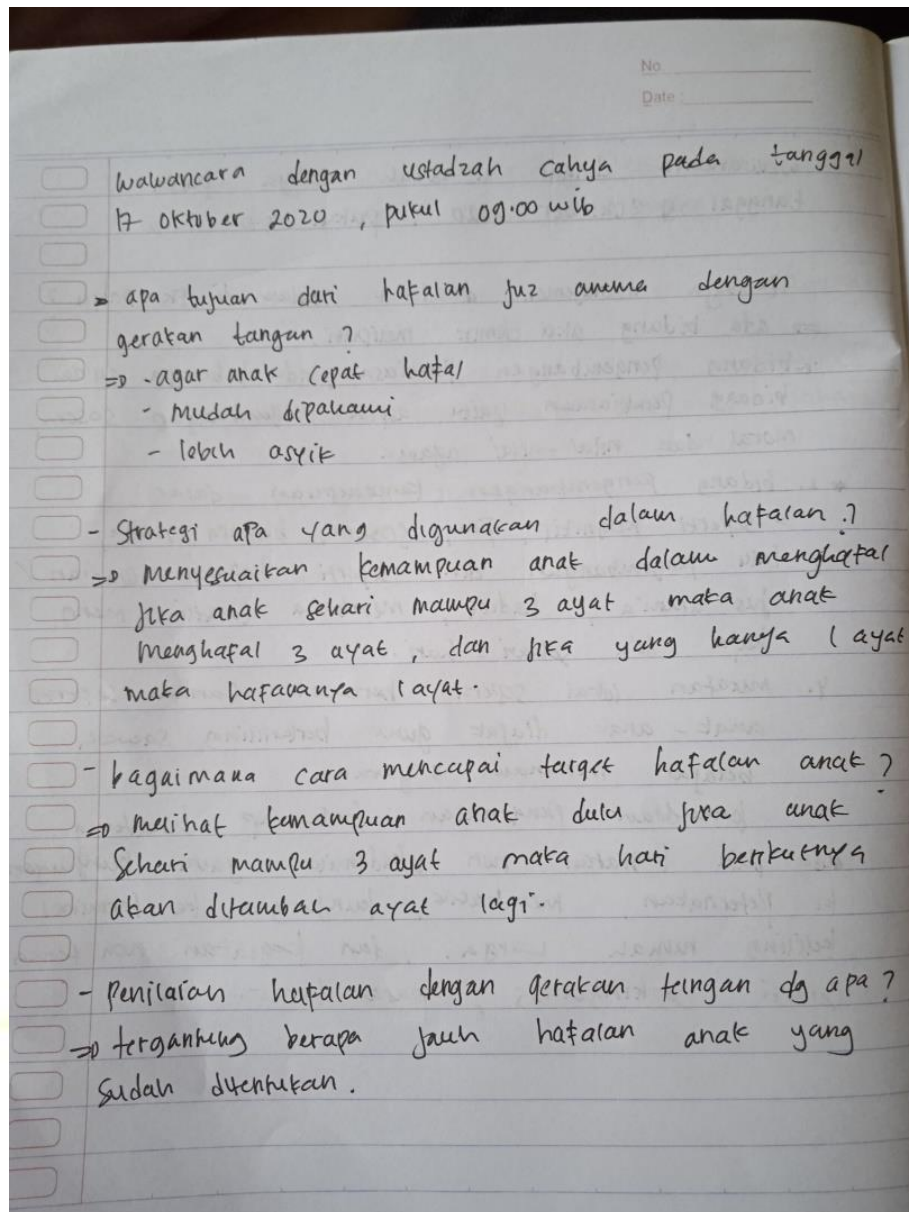 No
Date :
wawancara dengan ustadzah cahya pada tanggal
17 oktober 2020, pukul 09.00 wib
- apa tujuan dari hafalan juz amma dengan
gerakan tangan ?
=> - agar anak cepat hafal
- mudah dipahami
- lebih asyik
- Strategi apa yang digunakan dalam hafalan ?
=> Menyesuaikan kemampuan anak dalam menghafal
jika anak sehari mampu 3 ayat maka anak
menghafal 3 ayat, dan jika yang hanya 1 ayat
maka hafaanya 1 ayat.
- bagaimana cara mencapai target hafalan anak ?
=> melihat kemampuan anak dulu jika anak
Sehari mampu 3 ayat maka hari berikutnya
akan ditambah ayat lagi.
- Penilaian hafalan dengan gerakan tangan dg apa ?
=> tergantung berapa jauh hafalan anak yang
sudah ditentukan.